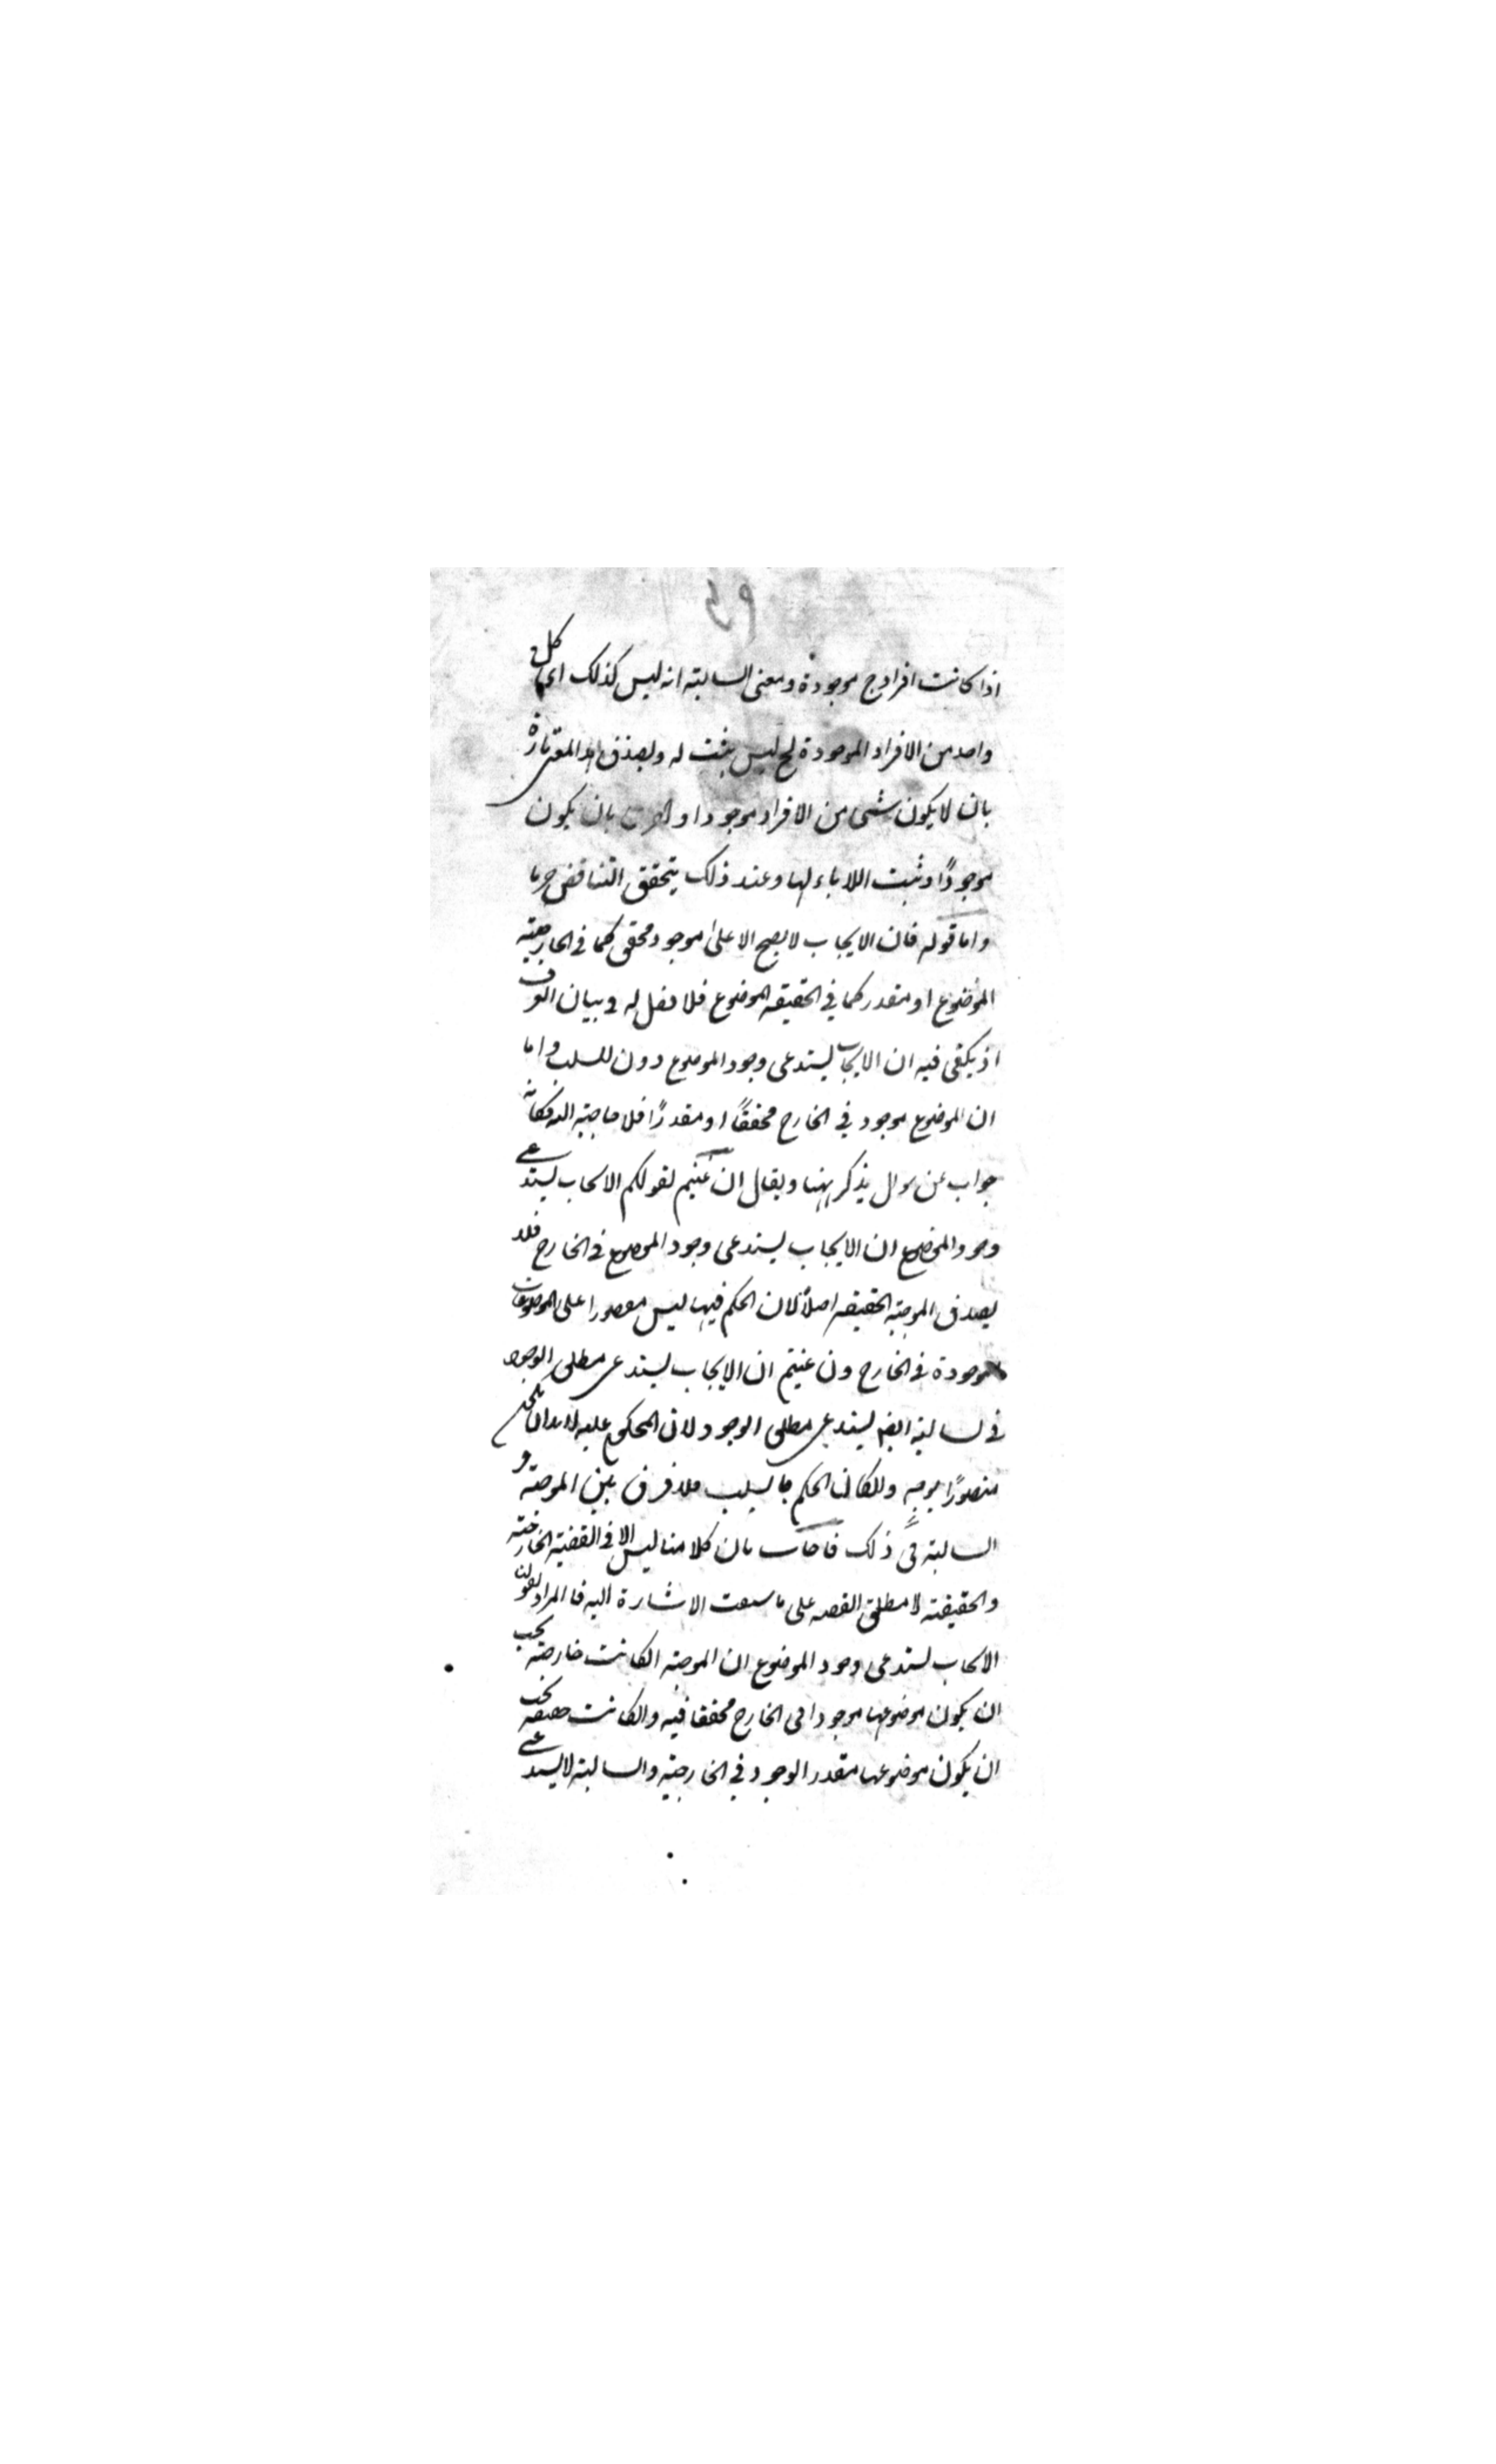 اذا كانت افراد ج موجودة ومعنى السالبة انه ليس كذلك اى كل
واحد من الافراد الموجودة لج ليس يثبت له ويصدق هذا المعنى تارة
بان لا يكون شى من الافراد موجودا و بان يكون
موجودًا وثبت اللاباء لها وعند ذلك يتحقق التناقض جزما
واما قوله فان الايجاب لا يصح الا على موجود محقق كما فى الخارجية
الموضوع او مقدر كما في الحقيقة الموضوع فلا دخل له في بيان الفرق
اذ يكفى فيه ان الايجاب يستدعى وجود الموضوع دون السلب واما
ان الموضوع موجود في الخارج محققًا او مقدرًا فلا حاجة اليه فكانه
جواب عن سوال يذكر ههنا ويقال ان عنيتم لقولكم الايجاب يستدعى
وجود الموضوع ان الايجاب يستدعى وجود الموضوع فى الخارج فلا
يصدق الموجبة الحقيقة اصلاً لان الحكم فيها ليس مقصورا على الموضوعات
موجودة فى الخارج ون عنيتم ان الايجاب يستدعى مطلق الوجود
فى لسالبة ايضا يستدعى مطلق الوجود لان المحكوم عليه لا بد ان يكون
متصورًا بوجه وللكان الحكم بالسلب فلا فرق بين الموجبة و
السالبة فى ذلك فاجاب بان كلامنا ليس الا فى القضية الخارجية
والحقيقة لا مطلق القضية على ما سبقت الاشارة اليه فالمراد بقولنا
الايجاب يستدعى وجود الموضوع ان الموجبة انكانت خارجة يجب
ان يكون موضوعها موجودا فى الخارج محققا فيه وانكانت حقيقة يجب
ان يكون موضوعها مقدر الوجود في الخارجية والسالبة لا يستدعى